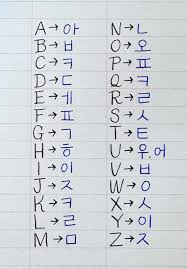 A→아
B→ㅂ
C→ㅋ
D→ㄷ
E→에
F→ㅍ
G→ㄱ
H→ㅎ
I→이
J→ㅈ
K→ㅋ
L→ㄹ
M→ㅁ
N→ㄴ
O→오
P→ㅍ
Q→ㅋ
R→ㄹ
S→ㅅ
T→ㅌ
U→우,어
V→ㅂ
W→ㅇ
X→ㅅ
Y→이
Z→ㅈ